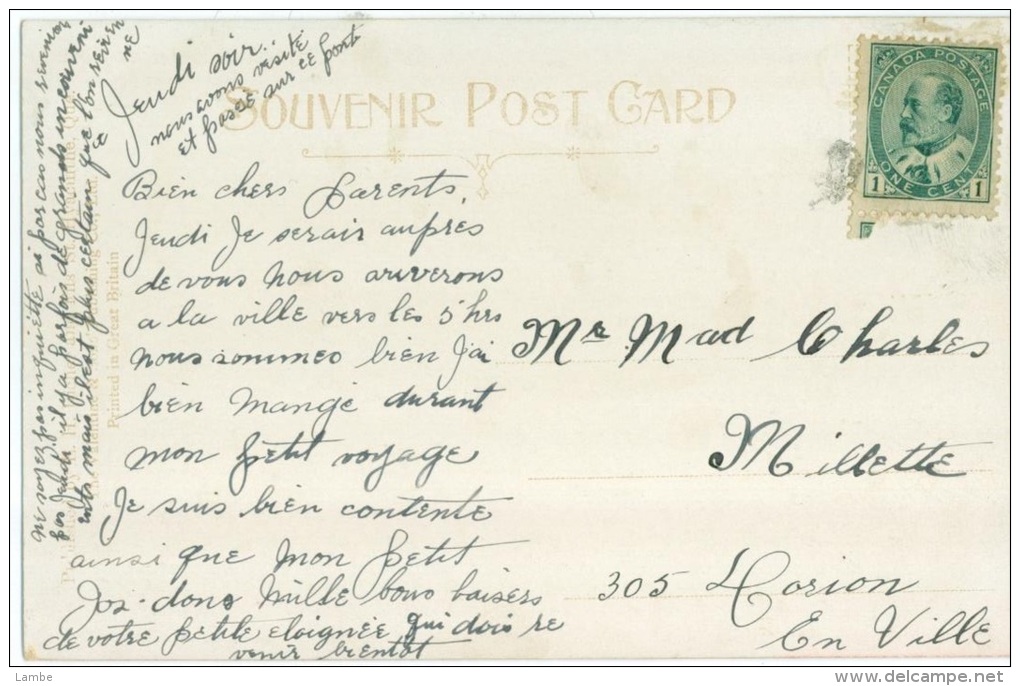 Jeudi soir..
nous avons visité
et passé sur ce pont
SOUVENIR POST CARD
CANADA POSTAGE
1 ONE CENT 1
Bien chers Parents,
Jeudi Je serair aupres
de vous nous arriverons
a la ville vers les 5 hrs
nous sommes bien J'ai
bien mangé durant
mon petit voyage
Je suis bien contente
ainsi que mon petit
Jos - donc mille bons baisers
de votre petite eloignée qui dois re
venir bientot
ne soyez pas inquiette si par cas nous
pas Jeudi il y a parfois de grands inconveni
ents mais il est plus certain que l'on
Mr Mad Charles
Millette
305 Dorion
En Ville
Printed in Great Britain
Lambe
delcampe.net